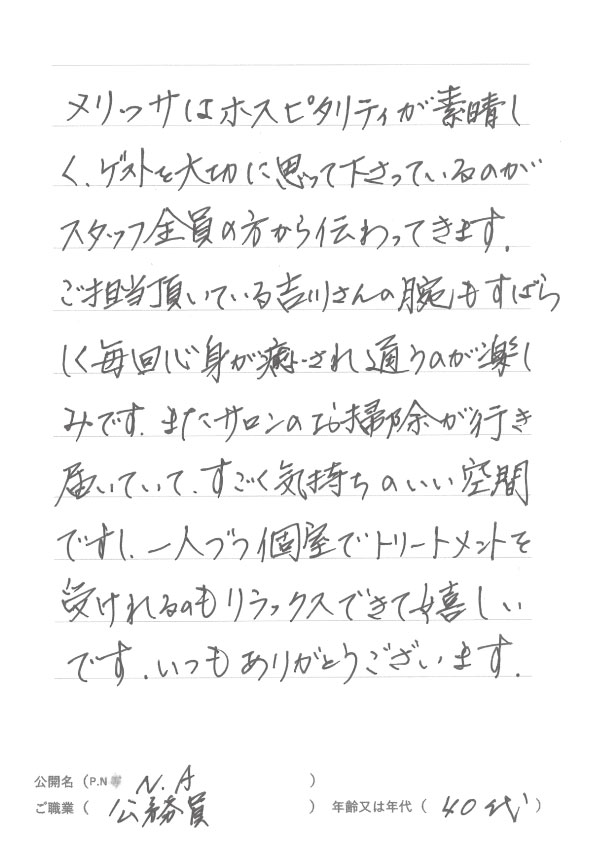 メリッサはホスピタリティが素晴し
く、ゲストを大切に思って下さっているのが
スタッフ全員の方から伝わってきます。
ご担当頂いている吉川さんの腕もすばら
しく毎回心身が癒され通うのが楽し
みです。またサロンのお掃除が行き
届いていて、すごく気持ちのいい空間
ですし、一人づつ個室でトリートメントを
受けれるのもリラックスできて嬉しい
です。いつもありがとうございます。
公開名（P.N N.A ）
ご職業（公務員）年齢又は年代（40代）